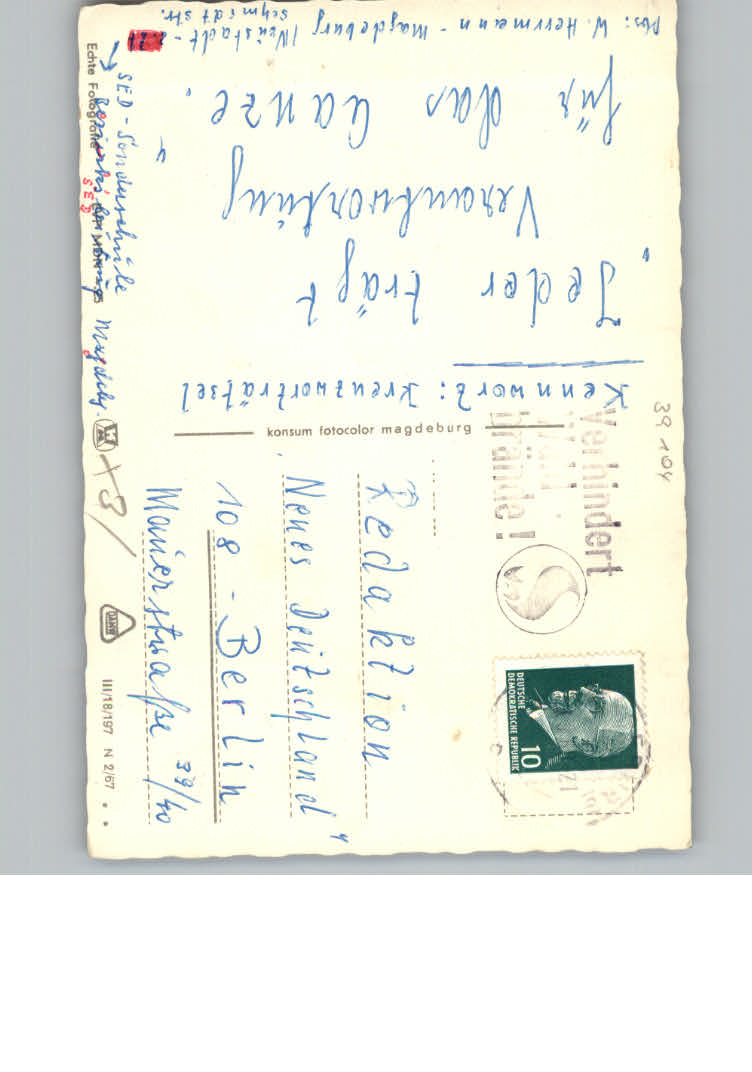 Abs: W. Herrmann - Magdeburg / Neustadt -
Schmidtstr.
Kennwort: Kreuzworträtsel
„Jeder trägt
Verantwortung
für das Ganze."
Redaktion
„Neues Deutschland"
108 - Berlin
Mauerstraße 39/40
SED - Sonderschule
SED
Magdebg.
Echte Fotografie
konsum fotocolor magdeburg
III/18/197 N 2/67
Verhindert
Wald-
brände!
DEUTSCHE
DEMOKRATISCHE REPUBLIK
10
39 104
+3/